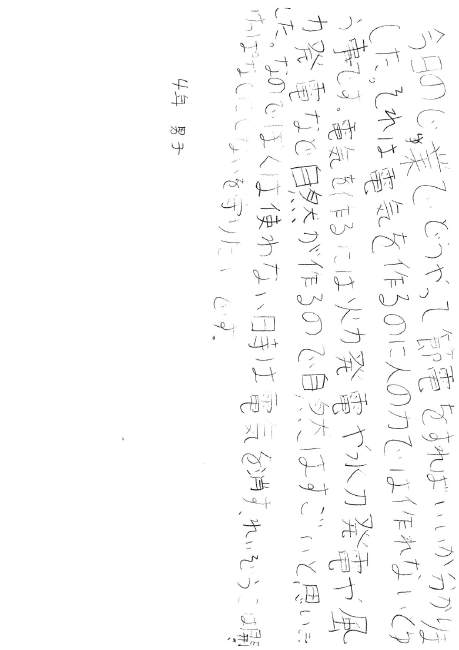 今日のじゅ業でどうやって節電をすればいいか分かりま
した。それは電気を作るのに人の力では作れないとい
う事です。電気を作るには火力発電や水力発電や風
力発電など自然が作るので自然はすごいと思いま
した。なのでぼくは使わない時は電気を消す、れいぞうこは開
けっぱなしにしないを守りたいです。
4年 男子